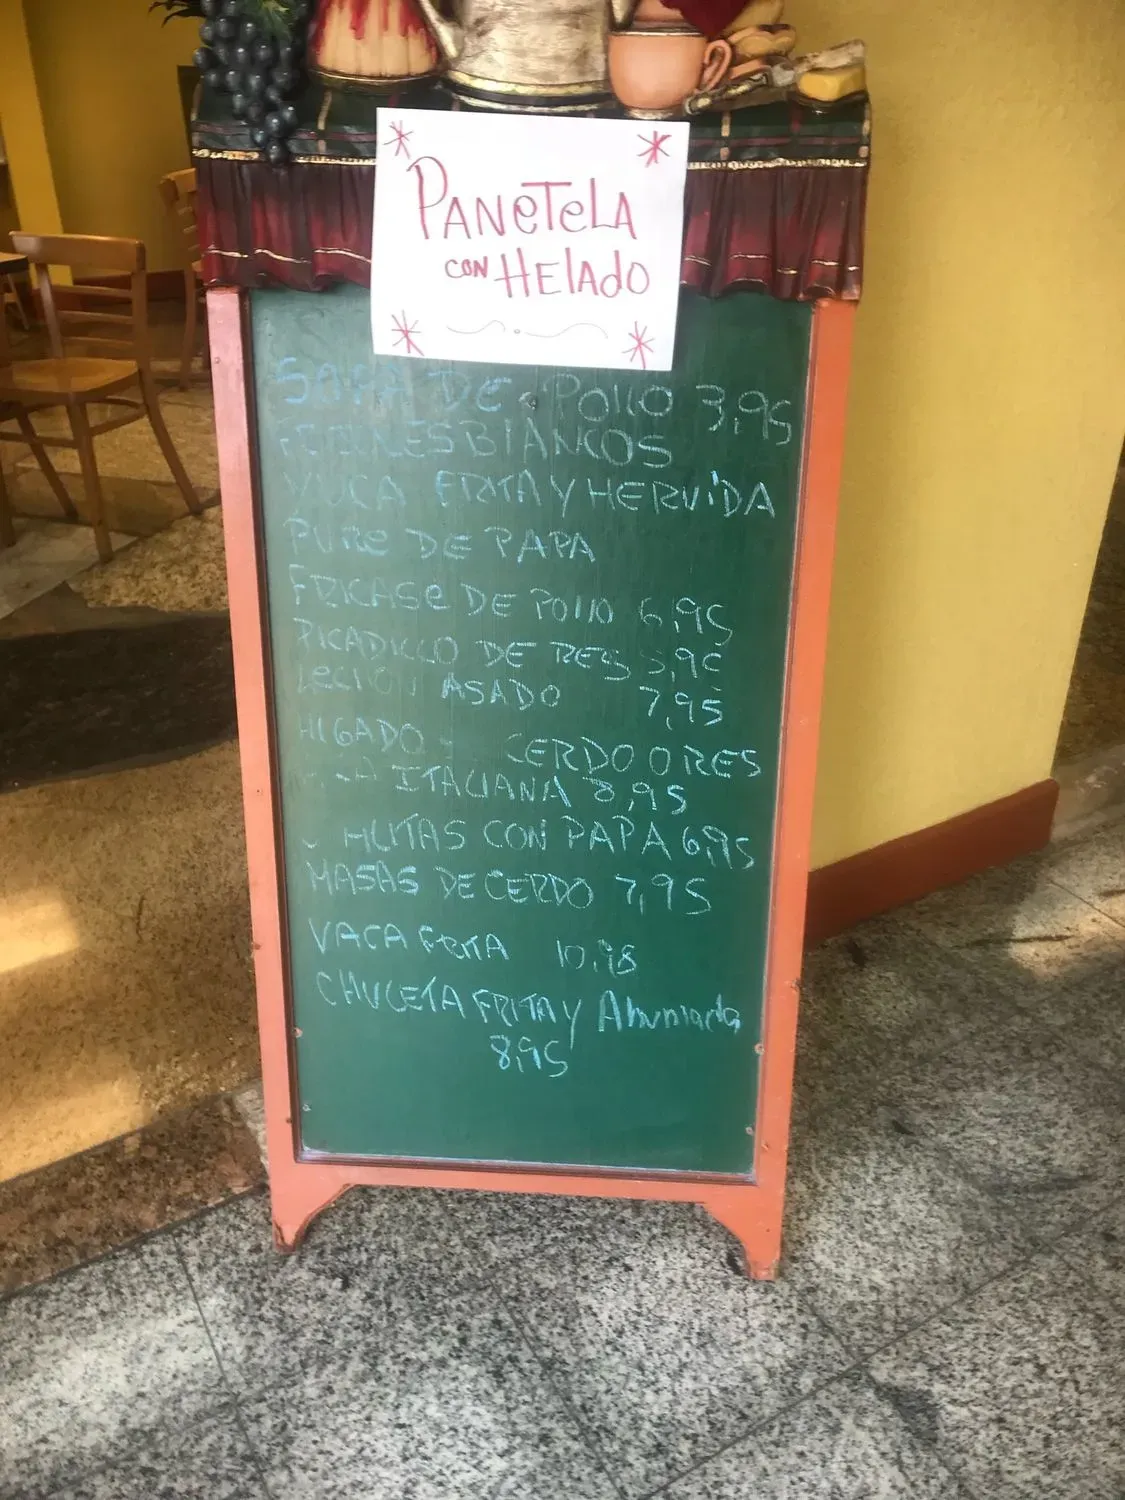 PANeTeLA
CON HElAdO
SOPA DE POllO 3,95
FRIJOLES BlANCOS
YUCA FRITA Y HERViDA
PURe DE PAPA
FRICASe DE POllO 6,95
PICADILLO DE RES ,95
LECHON ASADO 7,95
HIGADO CERDO O RES
A ITALIANA 8,95
CON PAPA 6,95
MASAS DE CERDO 7,95
VACA FRITA 10,95
CHULETA FRITA Y Ahumada
8,95